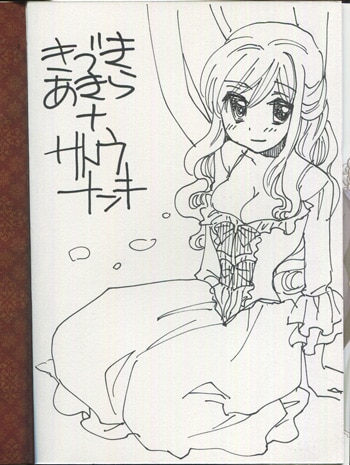 きづき
あきら
+
サトウ
ナンキ